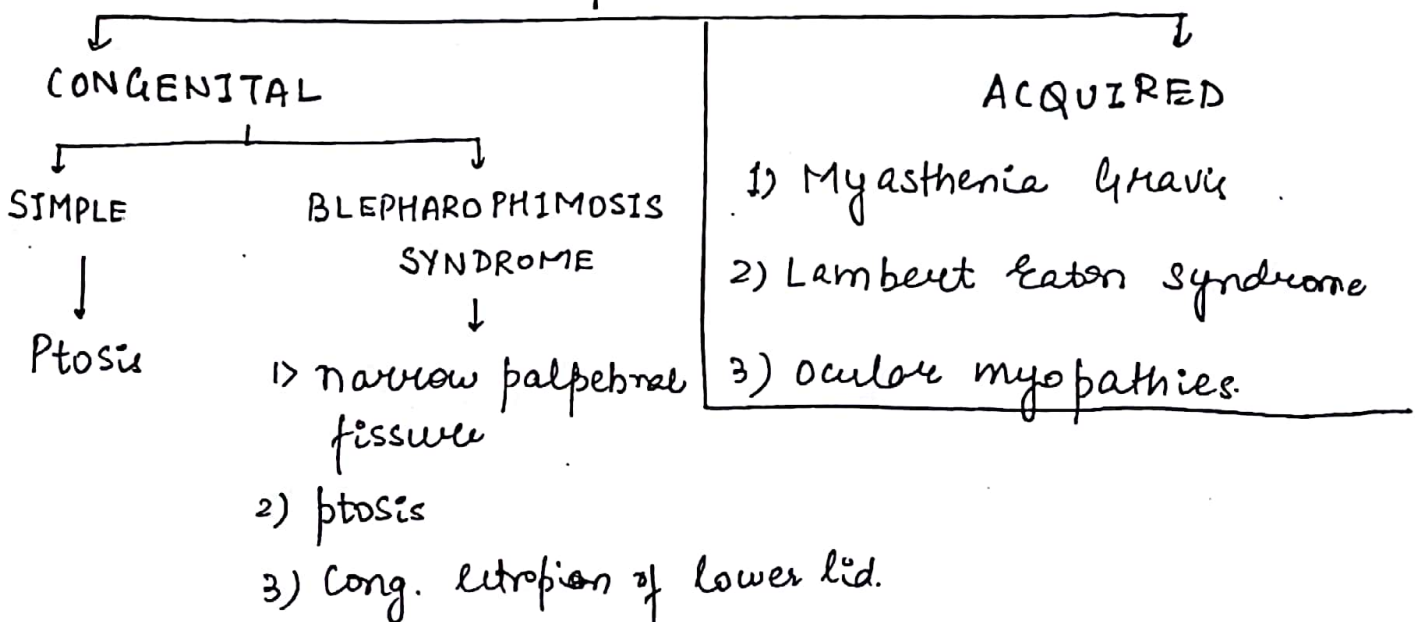 CONGENITAL
ACQUIRED
SIMPLE
BLEPHAROPHIMOSIS
SYNDROME
Ptosis
1) narrow palpebral
fissure
2) ptosis
3) Cong. ectropion of lower lid.
1) Myasthenia Gravis
2) Lambert Eaton Syndrome
3) Ocular myopathies.